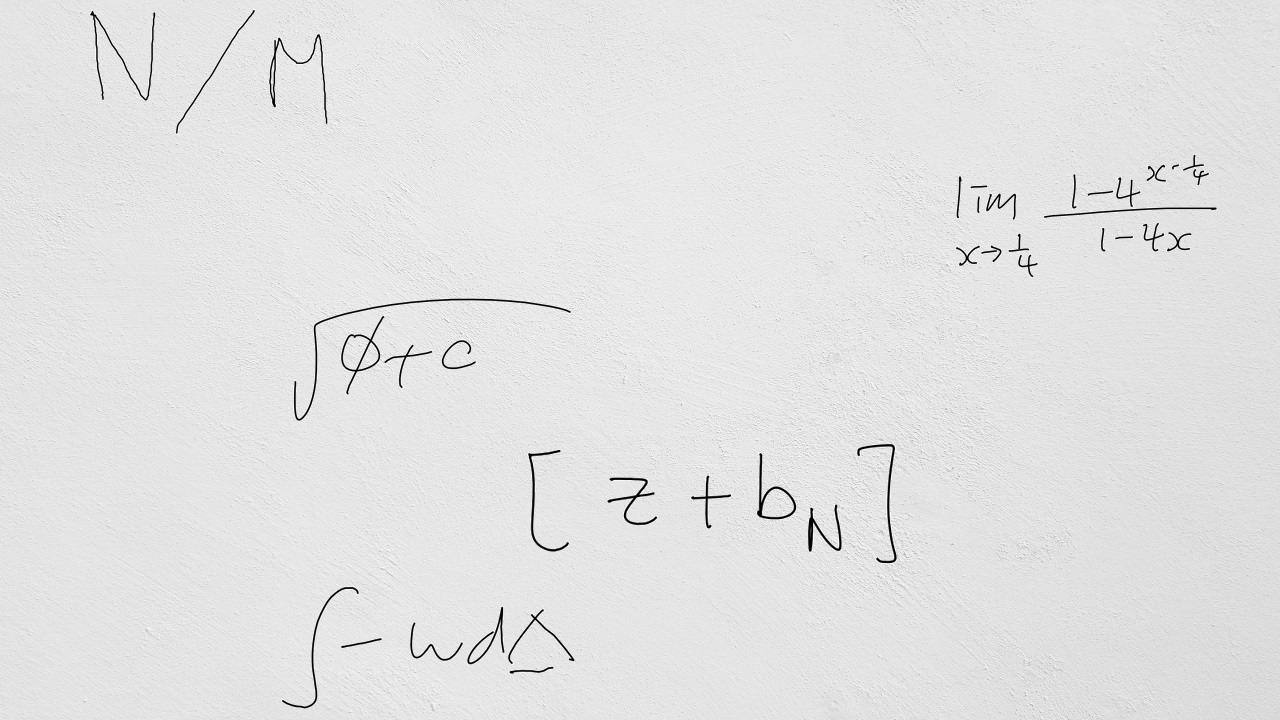 N/M
\lim_{x \to \frac{1}{4}} \frac{1-4^{x-\frac{1}{4}}}{1-4x}
\sqrt{\phi+c}
[z+b_N]
\int -wd\Delta